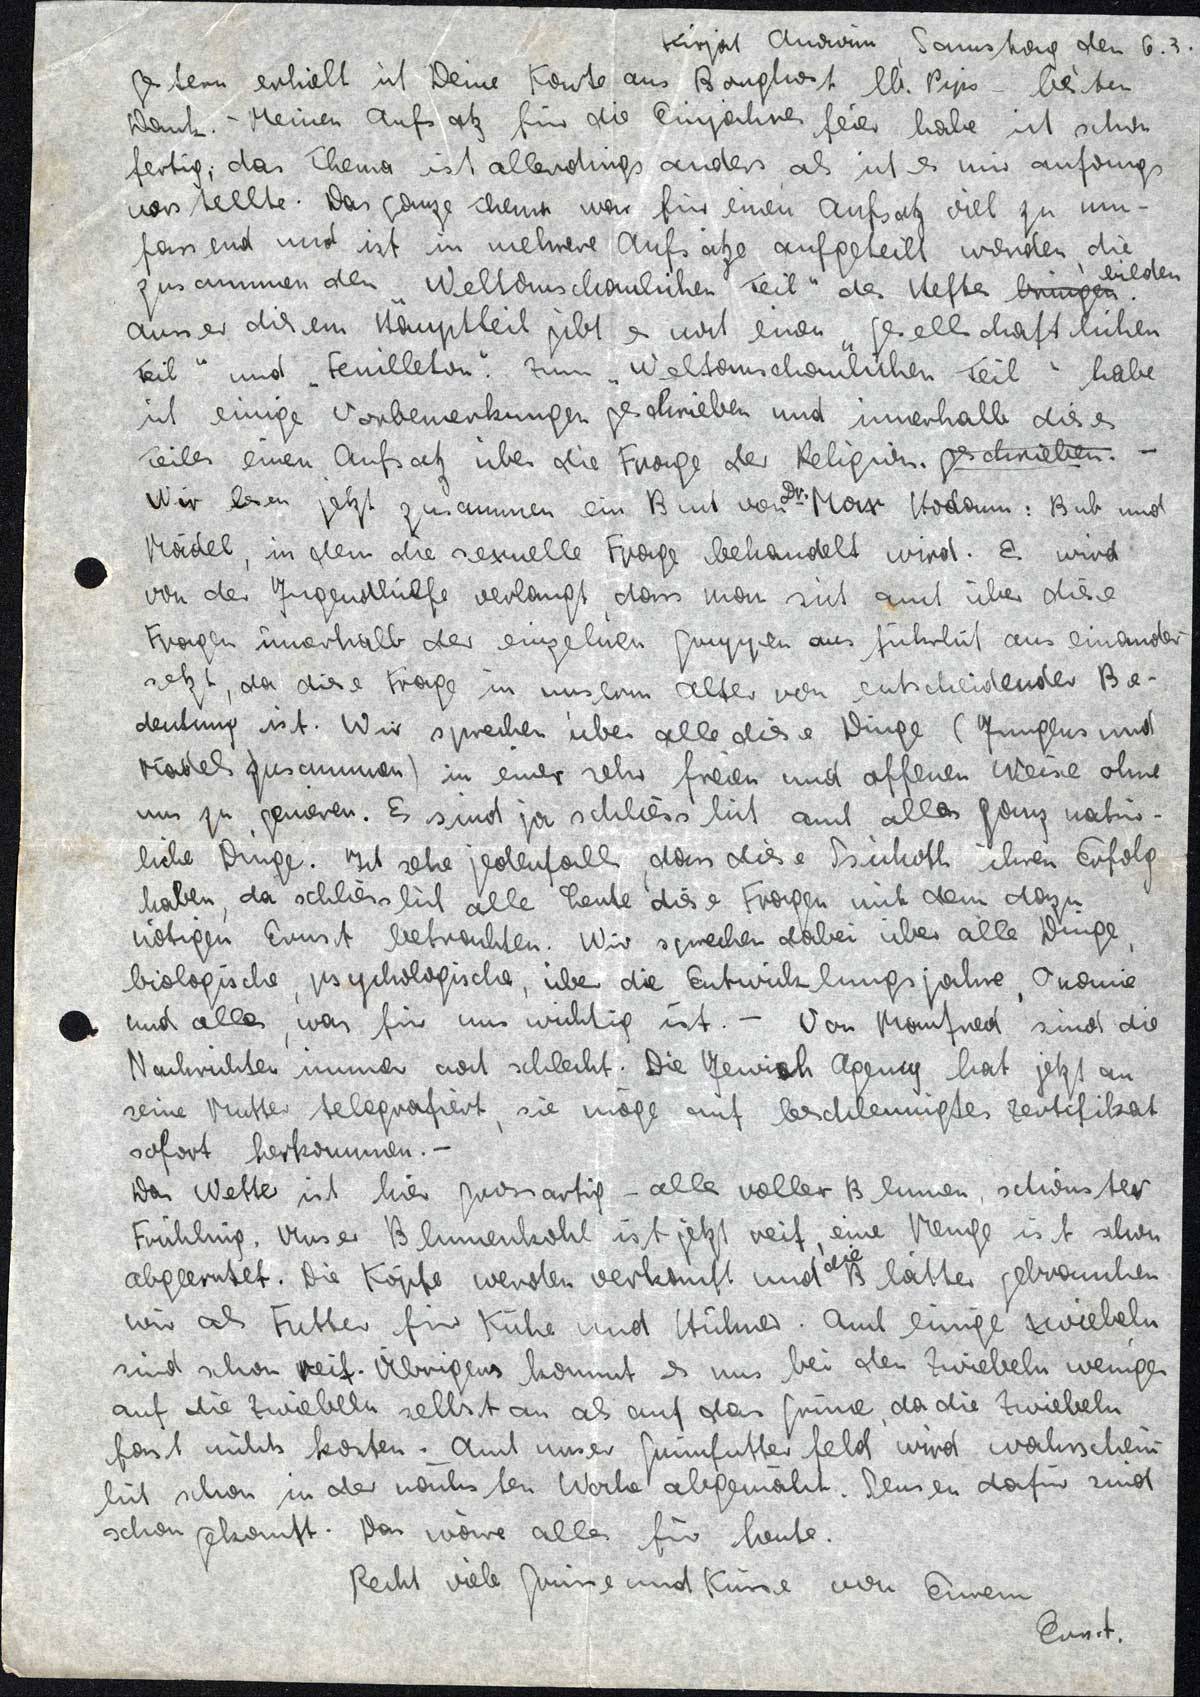 Kirjat Anawim Samstag den 6.3.
Gestern erhielt ich Deine Karte aus Borghorst lb. Pips – besten
Dank. – Meinen Aufsatz für die Einjahresfeier habe ich schon
fertig; das Thema ist allerdings anders als ich es mir anfangs
vorstellte. Das ganze Thema war für einen Aufsatz viel zu um-
fassend und ist in mehrere Aufsätze aufgeteilt worden, die
zusammen den „Weltanschaulichen Teil“ des Heftes bringen bilden.
Ausser diesem Hauptteil gibt es noch einen „gesellschaftlichen
Teil“ und „Feuilleton“. Zum „Weltanschaulichen Teil“ habe
ich einige Vorbemerkungen geschrieben und innerhalb dieses
Teiles einen Aufsatz über die Frage der Religion. geschrieben. –
Wir lesen jetzt zusammen ein Buch von Dr. Max Hodann: Bub und
Mädel, in dem die sexuelle Frage behandelt wird. Es wird
von der Jugendhilfe verlangt, dass man sich auch über diese
Fragen innerhalb der einzelnen Gruppen ausführlich auseinander
setzt, da diese Frage in unserm Alter von entscheidender Be-
deutung ist. Wir sprechen über alle diese Dinge (Jungens und
Mädels zusammen) in einer sehr freien und offenen Weise ohne
uns zu genieren. Es sind ja schliesslich auch alles ganz natür-
liche Dinge. Ich sehe jedenfalls, dass diese Sichoth ihren Erfolg
haben, da schliesslich alle Leute diese Fragen mit dem dazu
nötigen Ernst betrachten. Wir sprechen dabei über alle Dinge,
biologische, psychologische, über die Entwicklungsjahre, Onanie
und alles, was für uns wichtig ist. – Von Manfred sind die
Nachrichten immer noch schlecht. Die Jewish Agency hat jetzt an
seine Mutter telegrafiert, sie möge auf beschleunigtes Zertifikat
sofort herkommen. –
Das Wetter ist hier grossartig – alles voller Blumen, schönster
Frühling. Unser Blumenkohl ist jetzt reif, eine Menge ist schon
abgeerntet. Die Köpfe werden verkauft und die Blätter gebrauchen
wir als Futter für Kühe und Hühner. Auch einige Zwiebeln
sind schon reif. Übrigens kommt es uns bei den Zwiebeln weniger
auf die Zwiebeln selbst an als auf das Grüne, da die Zwiebeln
fast nichts kosten. Auch unser Grünfutterfeld wird wahrschein
lich schon in der nächsten Woche abgemäht. Sensen dafür sind
schon gekauft. Das wäre alles für heute.
Recht viele Grüsse und Küsse von Eurem
Ernst.